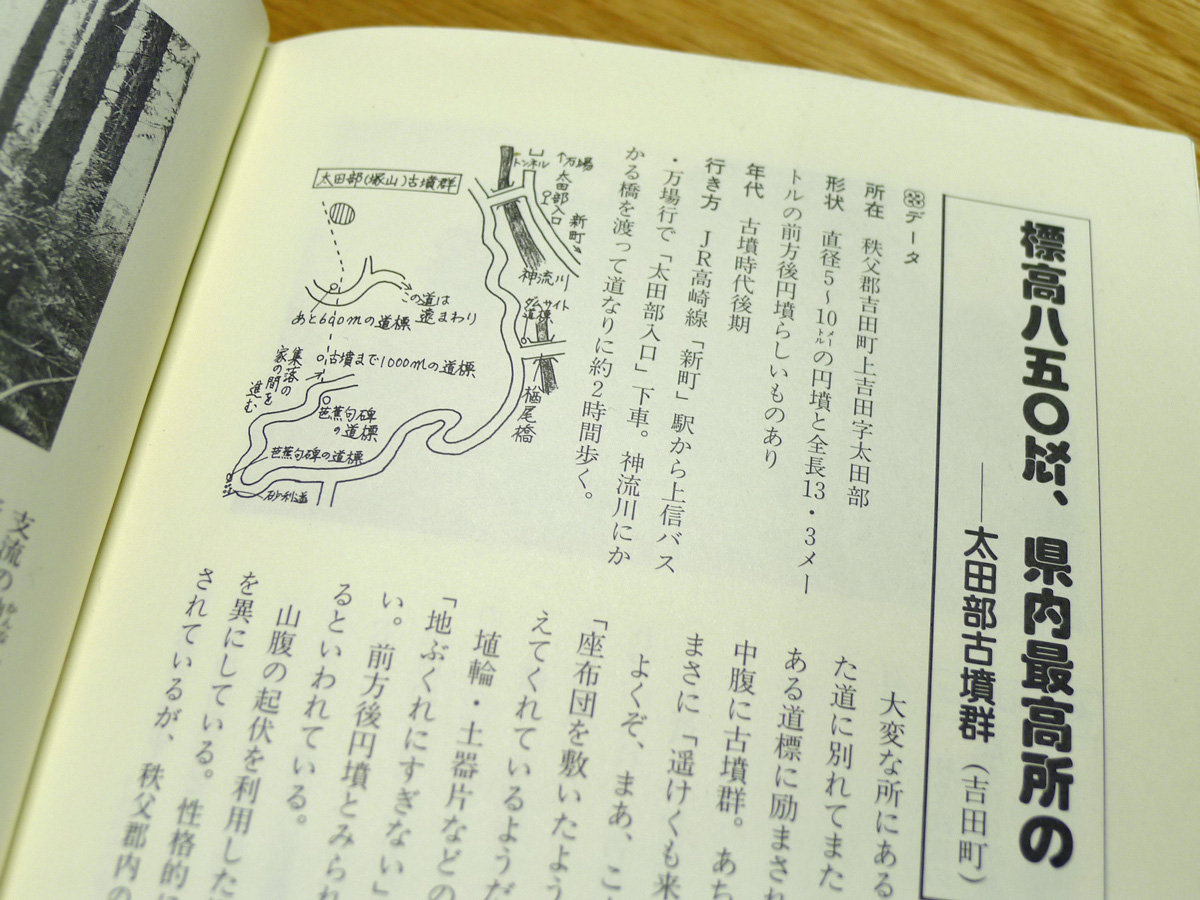 標高八五〇メートル、県内最高所の
――太田部古墳群（吉田町）
データ
所在　秩父郡吉田町上吉田字太田部
形状　直径5〜10メートルの円墳と全長13・3メー
トルの前方後円墳らしいものあり
年代　古墳時代後期
行き方　ＪＲ高崎線「新町」駅から上信バス
・万場行で「太田部入口」下車。神流川にか
かる橋を渡って道なりに約2時間歩く。
トンネル
↑万場
太田部入口
新町
神流川
ダムサイト
道標
楢尾橋
太田部(塚山)古墳群
この道は
遠まわり
あと690mの道標
古墳まで1000mの道標
集落の
家の間を
進む
芭蕉句碑
の道標
芭蕉句碑の道標
砂利道
大変な所にある
た道に別れてまた
ある道標に励まされ
中腹に古墳群。あち
まさに「遥けくも来
よくぞ、まあ、こ
「座布団を敷いたよう
えてくれているようだ
埴輪・土器片などの
「地ぶくれにすぎない」
い。前方後円墳とみられ
るといわれている。
山腹の起伏を利用した
を異にしている。性格的に
されているが、秩父郡内の
支流の